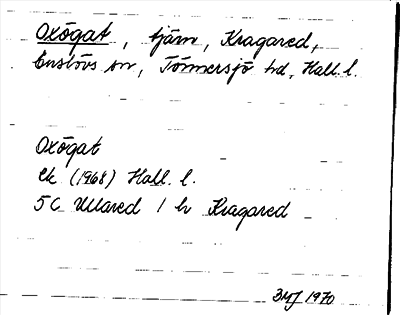 Oxögat, tjärn, Kragared,
Enslövs sn, Tönnersjö hd, Hall. l.
Oxögat
Ek (1968) Hall. l.
5C Ullared 1 h Kragared
1970